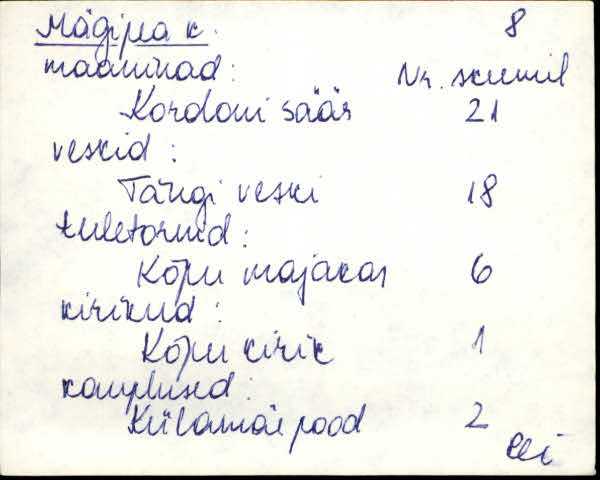 Mägipea k. 8
maaninad: Nr. skeemil
Kordoni säär 21
veskid:
Tängi veski 18
tuletornid:
Kõpu majakas 6
kirikud:
Kõpu kirik 1
kauplused:
Külamäe pood 2